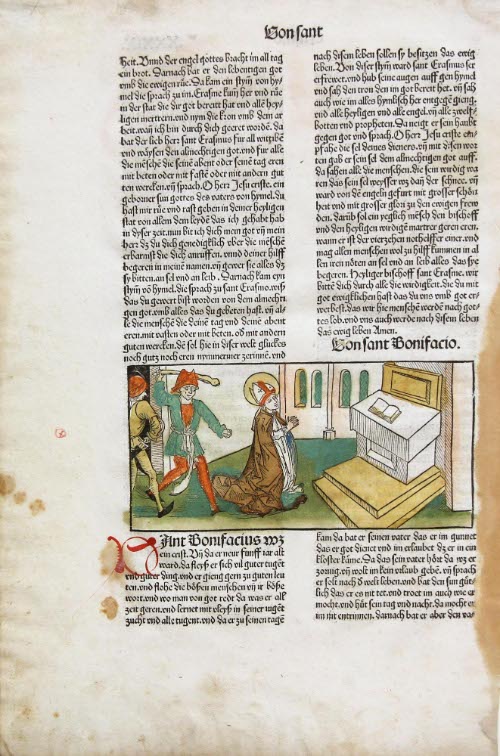 Von sant
heit. Vnnd der engel gottes bracht im all tag
ein brot. Darnach bat er den lebentigen got
vmb die ewigen růe. Da kam ein stym von hy
mel die sprach zů im. Erasme kum her vnd růe
in der stat die dir got bereit hat vnd alle hey-
ligen mertrern. vnd nym die kron vmb dem ar
beit. wañ ich bin durch dich geert worde. da
bat der lieb herr sant Erasmus für all witwen
vnd waysen den almechtigen got. vnd für alle
die mēsche die seine abent oder seine tag eren
mit beten oder mit fastē oder mit andern gut
ten wercken. vñ sprach. O herr Jesu criste. ein
geborner sun gottes des vaters von hymel. du
hast mir růe vnd rast geben in deiner heyligen
stat von allem dem leyde das ich gehabt hab
in dyser zeit. nun bit ich dich mein got vñ mein
herr dz du dich genediglich vber die mēschē
erbarmst die dich anruffen. vnnd deiner hilff
begeren in meinē namen. vñ gewer sie alles dz
sy bitten. an sel vnd an leib. Darnach kam eyn
stym vō hymel. die sprach zu sant Erasmo. wiß
das du gewert bist worden von dem almechti
gen got. vmb alles das du gebeten hast. vñ al-
le die mensche die deine tag vnd deine abent
eren. mit vasten oder mit beten. od mit andern
guten wercken. dē sol hie in diser welt gluckes
noch gutz noch eren nymmermer zerinnē. vnd
nach disem leben sollen sy besitzen das ewig
leben. Von diser stym ward sant Erasmus ser
erfrewet. vnd hub seine augen auff gen hymel
vnd sah den tron den im got bereit het. vñ sah
auch wie im alles hymlisch her entgegē gieng.
vnd alle heyligen vnd alle engel. vñ alle zwelf-
botten vnd propheten. Da neigt er sein haubt
gegen got vnd sprach. O herr Jesu criste en-
pfahe die sel deines dieners. vñ mit disen wor
ten gab er sein sel dem almechtigen got auff.
da sahen alle die menschen. die sein wirdig wa
ren das sein sel weysser wz dañ der schnee. vñ
ward von dē engeln gefurt mit grosser schön
heit vnd mit grosser glori zu den ewigen frew
den. darüb sol ein yeglich mēsch den bischoff
vnd den heyligen wirdigē martrer geren eren.
wann er ist der vierzehen nothelffer einer. vnd
mag allen menschen wol zu hilff kummen in al
len iren nöten an sel vnd an leib alles das sye
begeren. Heyliger bischoff sant Erasme. wir
bitte dich durch alle die wirdigkeit. die du mit
got ewiglichen hast das du vns vmb got er-
werbest. das wir hie menschē werdē nach got-
tes lob. vnd vns auch werde nach disem leben
das ewig leben Amen.
Von sant Bonifacio.
Sant Bonifacius wz
ein crist. Vñ da er neur funff iar alt
ward. da fleyß er sich vil guter tugēt
vnd guter ding. vnd er gieng gern zu guten leu
ten. vnd flohe die bösen menschen vñ ir böse
wort. vnd wo man von got redt da was er alt
zeit geren. vnd lernet mit fleyß in seiner iugēt
zucht vnd alle tugent. vnd da er zu seinen tagē
kam da bat er seinen vater das er im gunnet
das er got dienet vnd im erlaubet dz er in ein
kloster kāme. Da das sein vater hört da wz er
zornig. vñ wolt im kein vrlaub gebē. vñ sprach
er solt nach d welt leben. vnd bat den sun güt-
lich das er es nit tet. vnd troet im auch wie er
mocht. vnd hut sein tag vnd nacht. da mocht er
im nit entrinnen. darnach bat er aber den va-